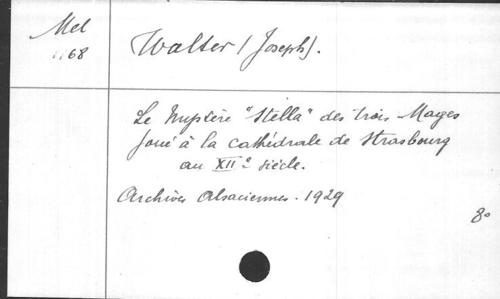 Mel
1168
Walter (Joseph).
Le Mystère "Stella" des trois Mages
joué à la cathédrale de Strasbourg
au XIIe siècle.
Archives alsaciennes. 1929
8o